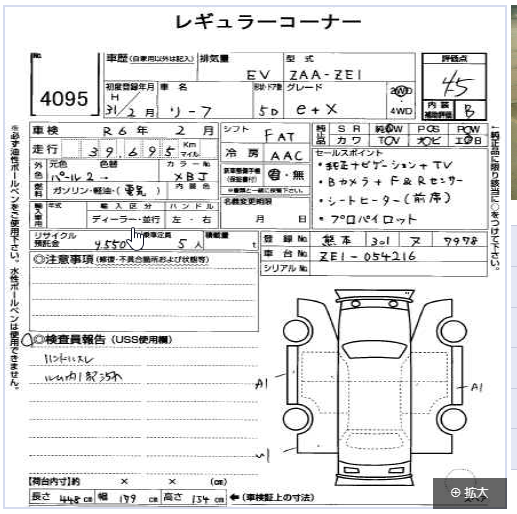 レギュラーコーナー
No. 4095
車歴(自家用以外は記入)
排気量 EV
型式 ZAA-ZE1
評価点 4.5
内装補助評価 B
初度登録年月 H 31/2月
車名 リーフ
形状・ドア数 5D
グレード e+X
2WD
4WD
車検 R6年 2月
シフト FAT
純正品 SR 純AW PS PW
カワ TV ナビ エアB
走行 39,695 Km マイル
冷房 AAC
セールスポイント
・純正ナビゲーション+TV
・Bカメラ+F&Rセンサー
・シートヒーター(前席)
・プロパイロット
外色 元色 パール2→ 色替
カラーNo. XBJ
有・無
燃料 ガソリン・軽油・(電気)
内装色
名義変更期限 月 日
輸入車用 年式 輸入区分 ディーラー・並行
ハンドル 左・右
リサイクル預託金 9,550
乗車定員 5人
積載量 t
登録No. 熊本 301 ヌ 7978
車台No. ZE1-054216
シリアルNo.
◎注意事項(修復・不具合箇所および状態等)
◎検査員報告(USS使用欄)
ハンドルスレ
ルーム内1記こ汚れ
A1
A1
【荷台内寸】約 × × (cm)
長さ 448 cm 幅 179 cm 高さ 154 cm ←(車検証上の寸法)
※必ず油性ボールペンをご使用下さい。水性ボールペンは使用できません。
↑純正品に限り該当に○をつけて下さい。
拡大